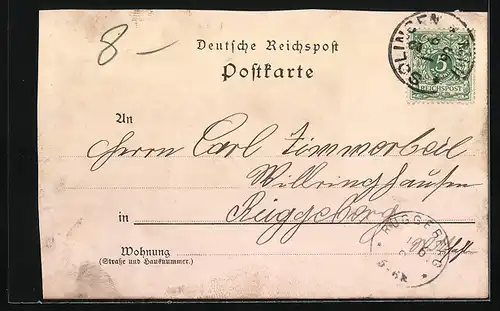 8 –
Deutsche Reichspost
Postkarte
SOLINGEN
5
REICHSPOST
An
Herrn Carl Zimmerbeil
Willringhausen
in Rüggeberg
RÜGGEBERG
Wohnung
(Straße und Hausnummer.)